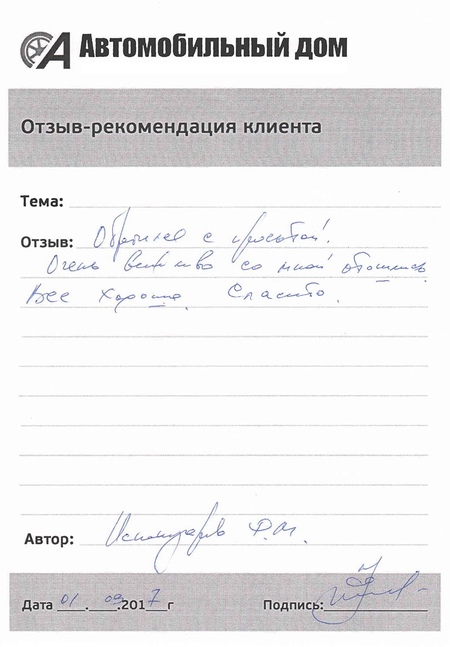 Автомобильный дом
Отзыв-рекомендация клиента
Тема:
Отзыв: Обратился с просьбой.
Очень вежливо со мной отошлись
Все хорошо. Спасибо.
Автор: Ф.М.
Дата 01.09.2017г Подпись: